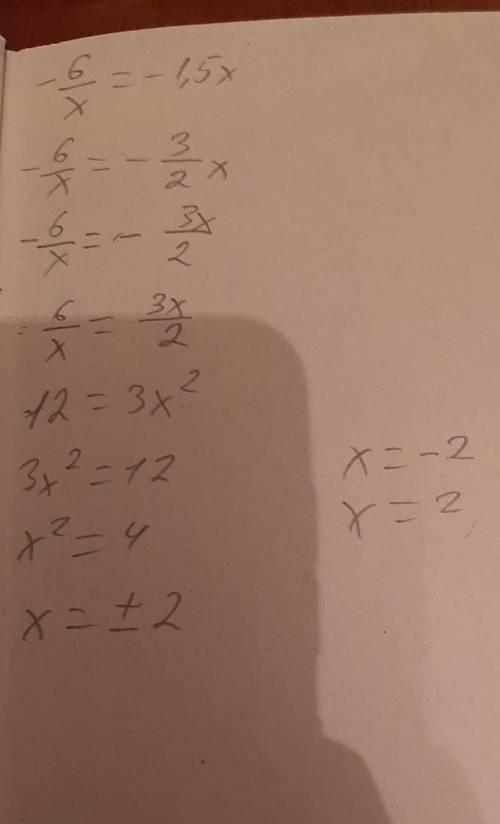 -6/x = -1,5x
-6/x = -3/2 x
-6/x = - 3x/2
6/x = 3x/2
12 = 3x²
3x² = 12
x² = 4
x = ± 2
x = -2
x = 2